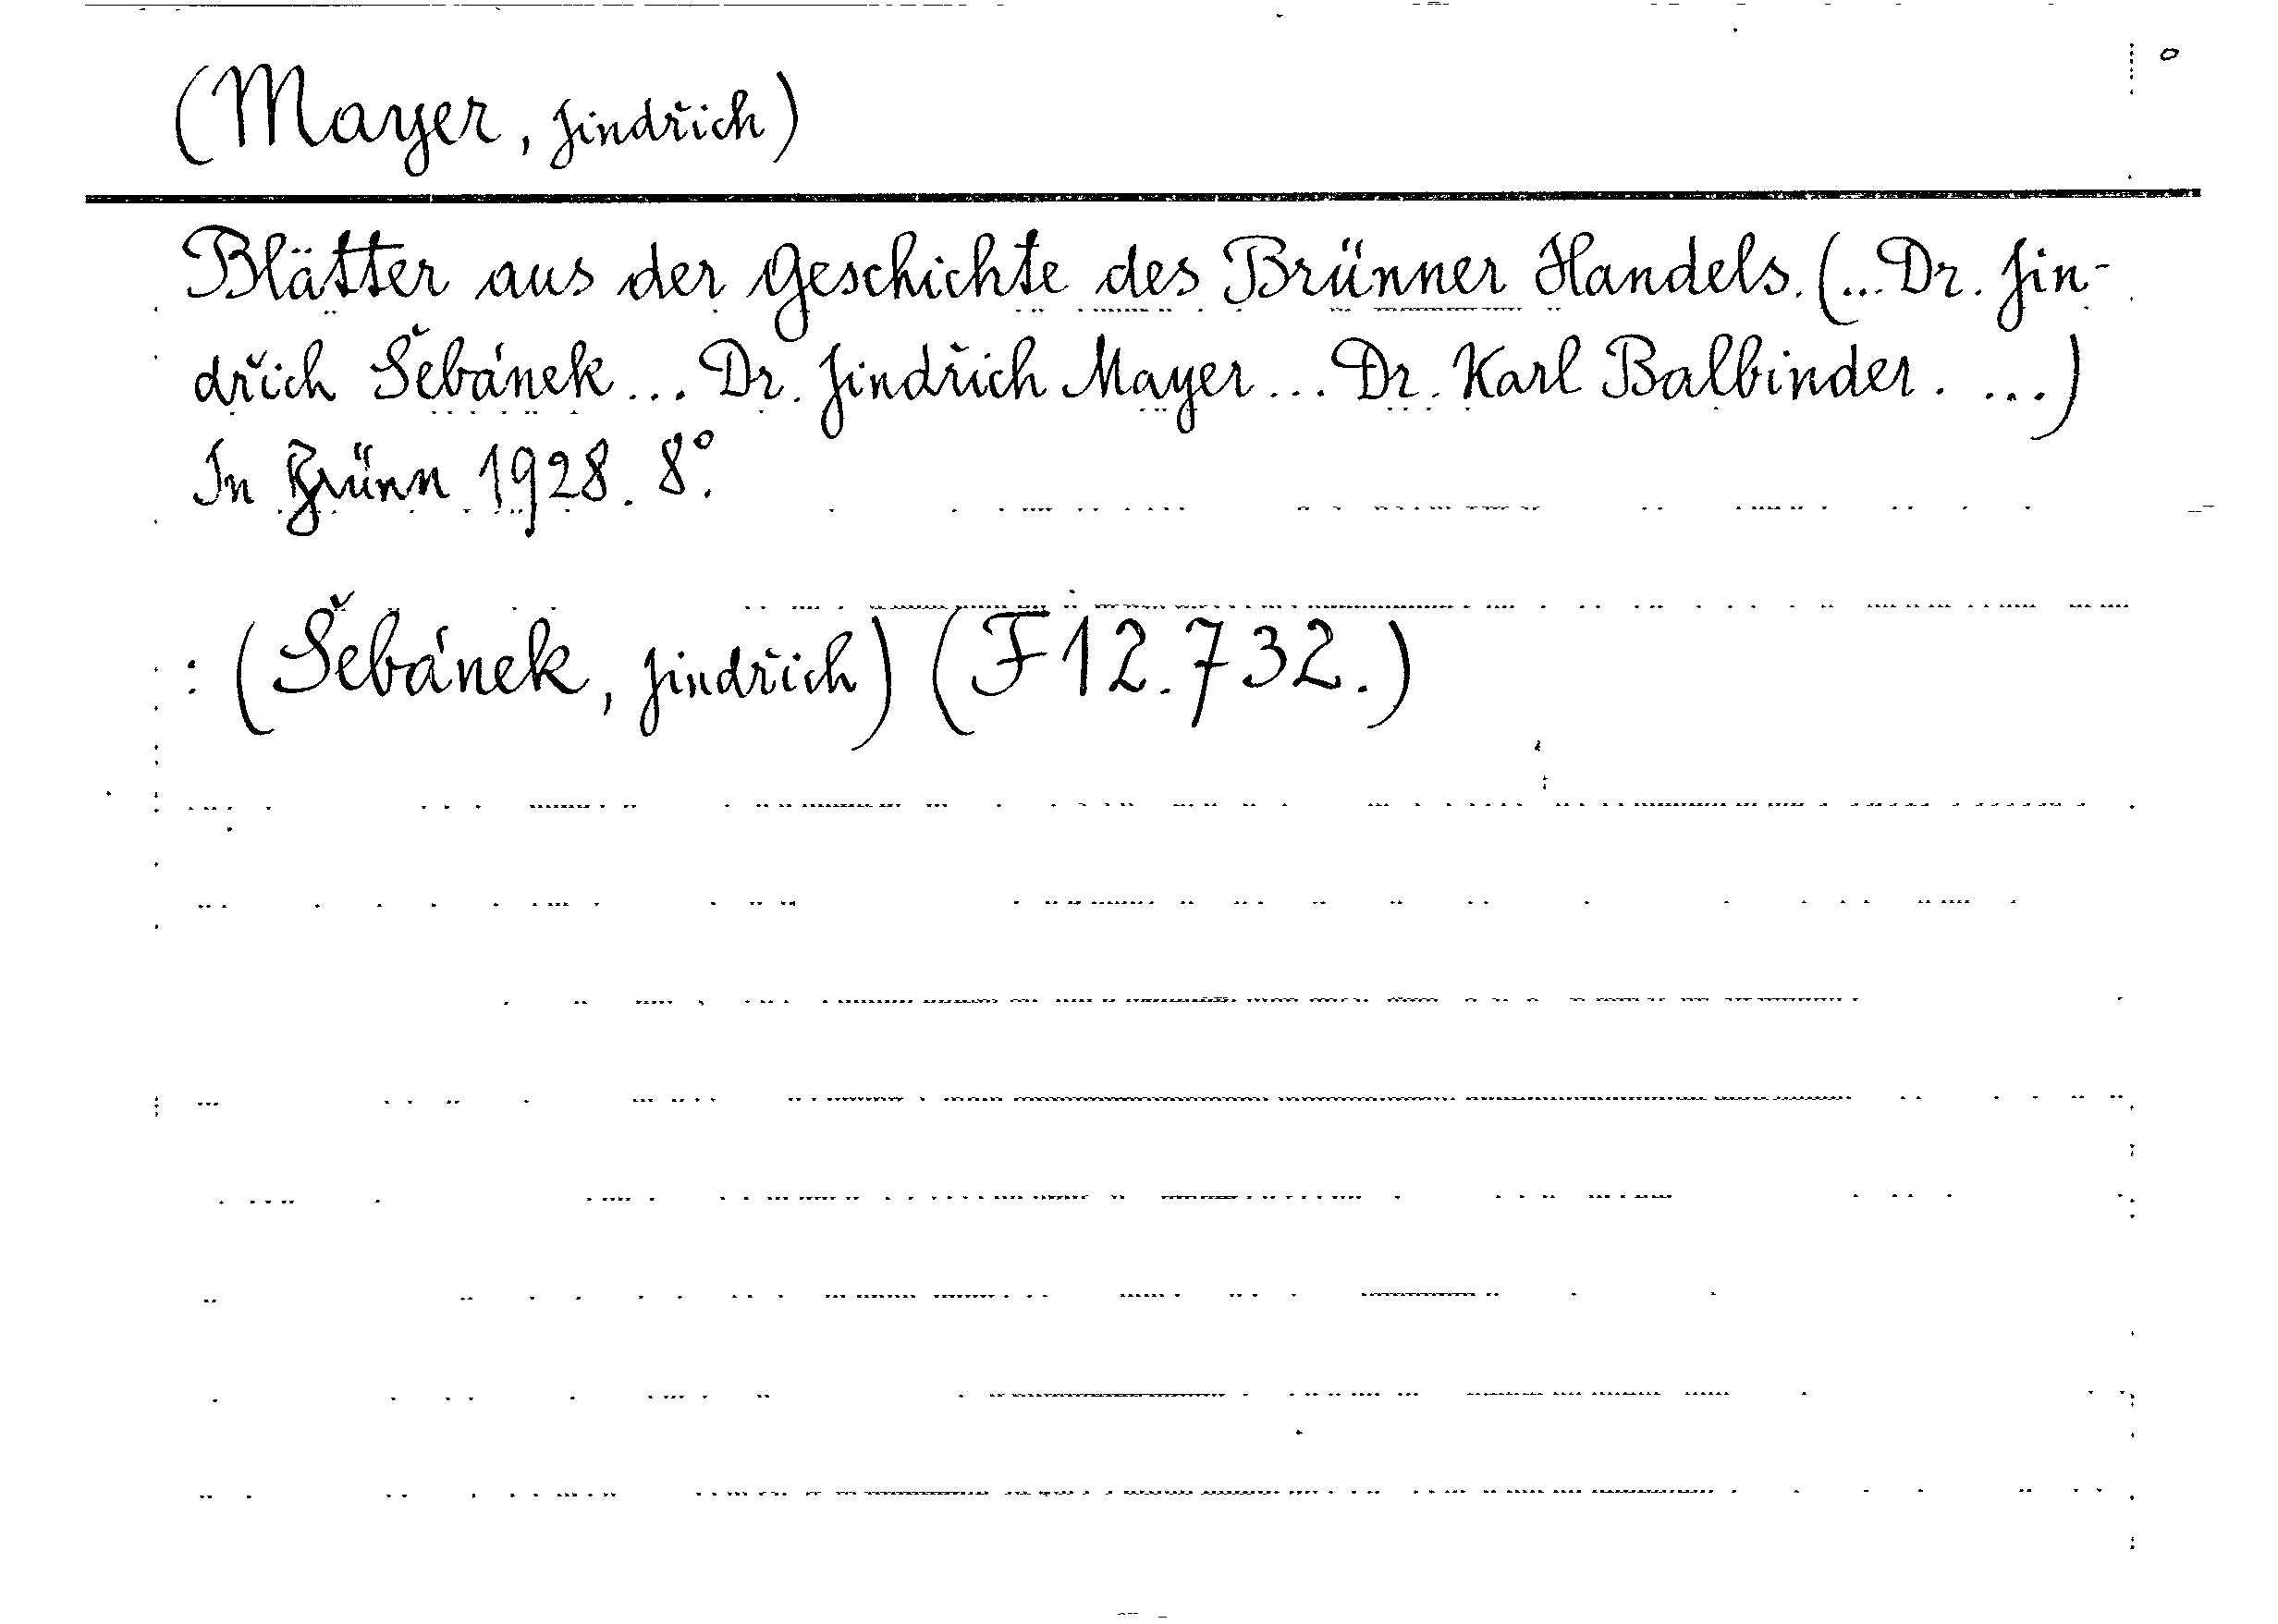 (Mayer, Jindřich)
Blätter aus der Geschichte des Brünner Handels. (... Dr. Jin-
dřich Šebánek ... Dr. Jindřich Mayer ... Dr. Karl Balbinder. ...)
In Brünn 1928. 8°.
: (Šebánek, Jindřich) (F 12.732.)